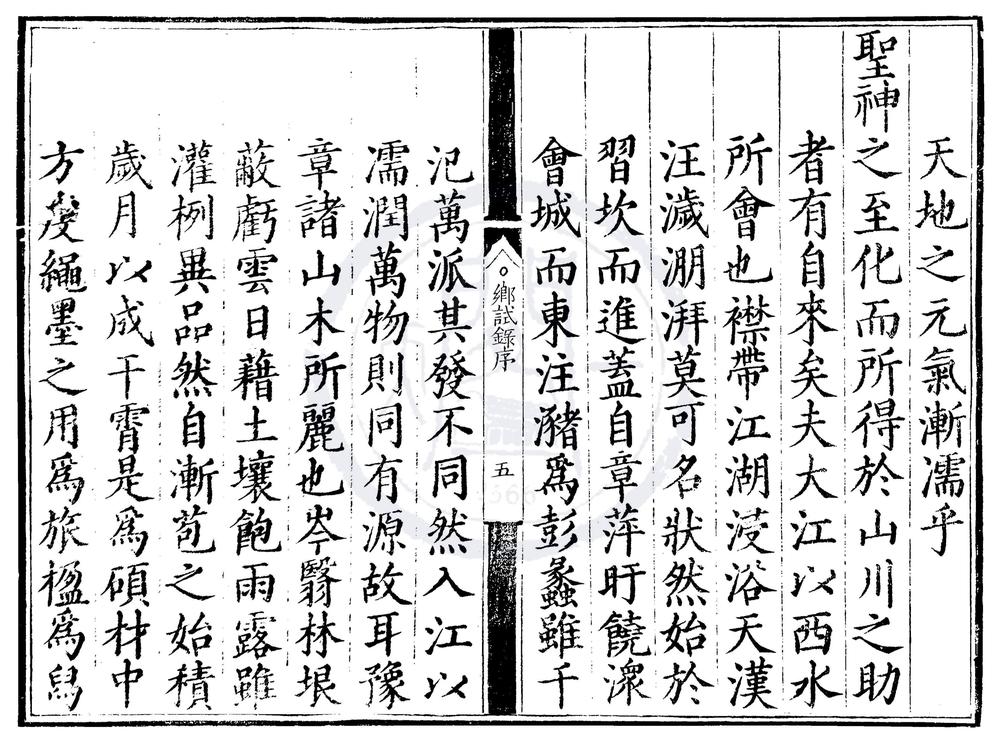 天地之元氣漸濡乎
聖神之至化而所得於山川之助
者有自來矣夫大江以西水
所會也襟帶江湖浸浴天漢
汪濊淜湃莫可名狀然始於
習坎而進蓋自章萍盱饒潀
會城而東注瀦爲彭蠡雖千
鄉試錄序
五
氾萬派其發不同然入江以
濡潤萬物則同有源故耳豫
章諸山木所麗也岑翳林垠
蔽虧雲日藉土壤飽雨露雖
灌栵異品然自漸苞之始積
歲月以成干霄是爲碩材中
方度繩墨之用爲旅楹爲舄